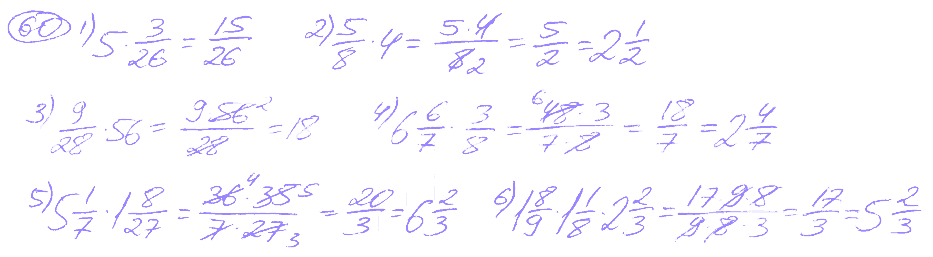 60 1) 5 · 3/26 = 15/26 2) 5/8 · 4 = 5·4/8 2 = 5/2 = 2 1/2
3) 9/28 · 56 = 9 56 2/28 = 18 4) 6 6/7 · 3/8 = 6 48 · 3/7 · 8 = 18/7 = 2 4/7
5) 5 1/7 · 1 8/27 = 36 4 · 35 5/7 · 27 3 = 20/3 = 6 2/3 6) 1 8/9 · 1 1/8 · 2 2/3 = 17 · 9 · 8/9 · 8 · 3 = 17/3 = 5 2/3